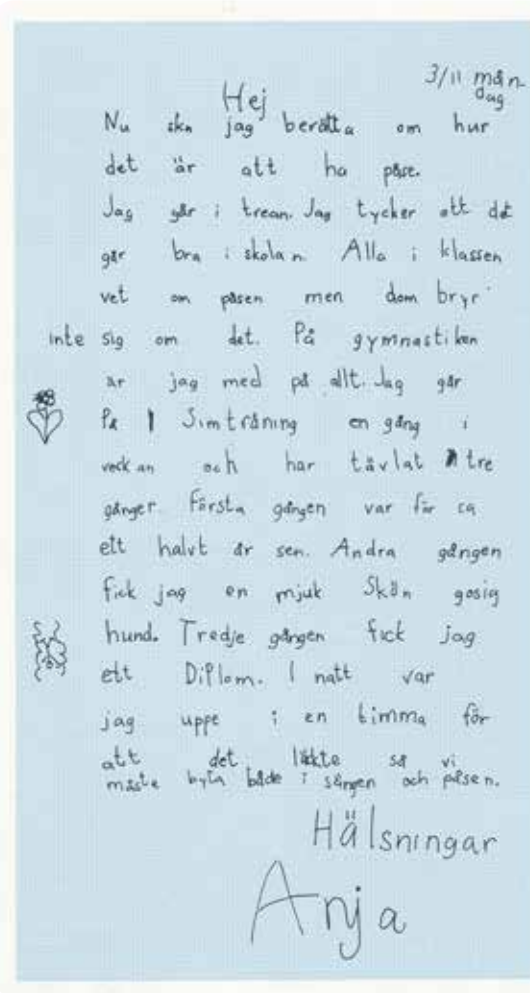 3/11 mån
dag
Hej
Nu ska jag berätta om hur
det är att ha påse.
Jag går i trean. Jag tycker att det
går bra i skolan. Alla i klassen
vet om påsen men dom bryr
inte sig om det. På gymnastiken
är jag med på allt. Jag går
På Simträning en gång i
veckan och har tävlat tre
gånger. Första gången var för ca
ett halvt år sen. Andra gången
fick jag en mjuk Skön gosig
hund. Tredje gången fick jag
ett Diplom. I natt var
jag uppe i en timma för
att det läkte så vi
måste byta både i sängen och påsen.
Hälsningar
Anja